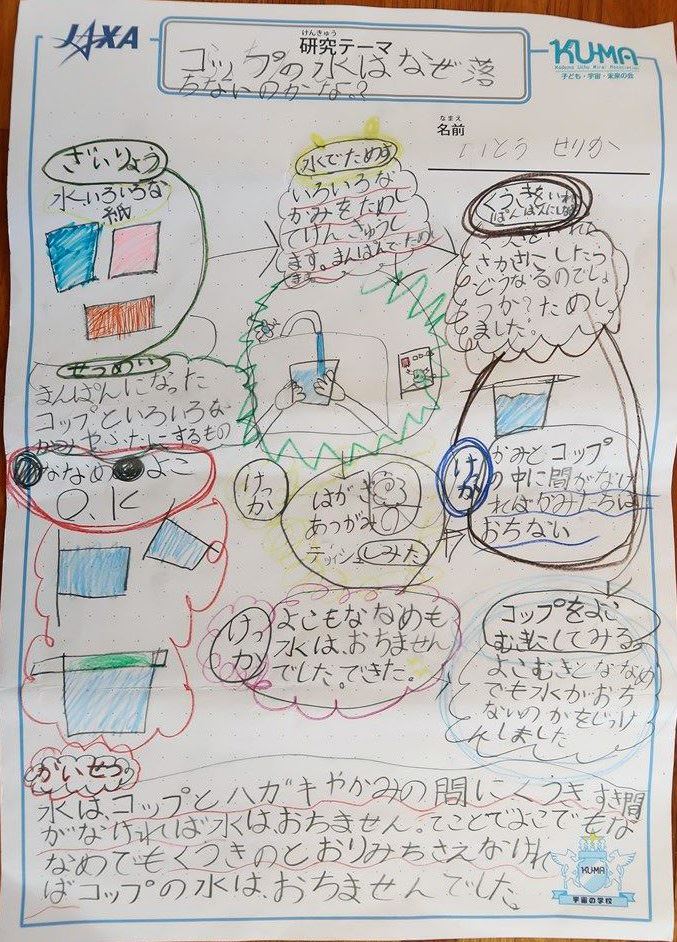 JAXA
けんきゅう
研究テーマ
コップの水はなぜ落
ちないのかな?
KU-MA
Kodomo Uchu Mirai Association
子ども・宇宙・未来の会
なまえ
名前
せりか
ざいりょう
水いろいろな
紙
水でためす
いろいろな
かみをためし
てけんきゅうし
ます。まんぱんでためし
ます。
くうきをいれ
さかさにしたっ
どうなるのでしょ
うか?ためし
ました。
せつめい
まんぱんになった
コップといろいろな
かみやふたにするもの
ななめ よこ
O.K
けっか
はがき
あつがみ
ティッシュしみた
けっか
かみとコップ
の中に間がなけ
ればかみたちは
おちない
けっか
よこもななめも
水は、おちません
でした。できた。
コップをよこ
むきにしてみる
よこむきとななめ
でも水がおち
ないのかをじっけ
んしました
かいせつ
水は、コップとハガキやかみの間にくうきすき間
がなければ水は、おちません。てことでよこでもな
なめでもくうきのとおりみちさえなけれ
ばコップの水は、おちませんでした。
KU-MA
宇宙の学校